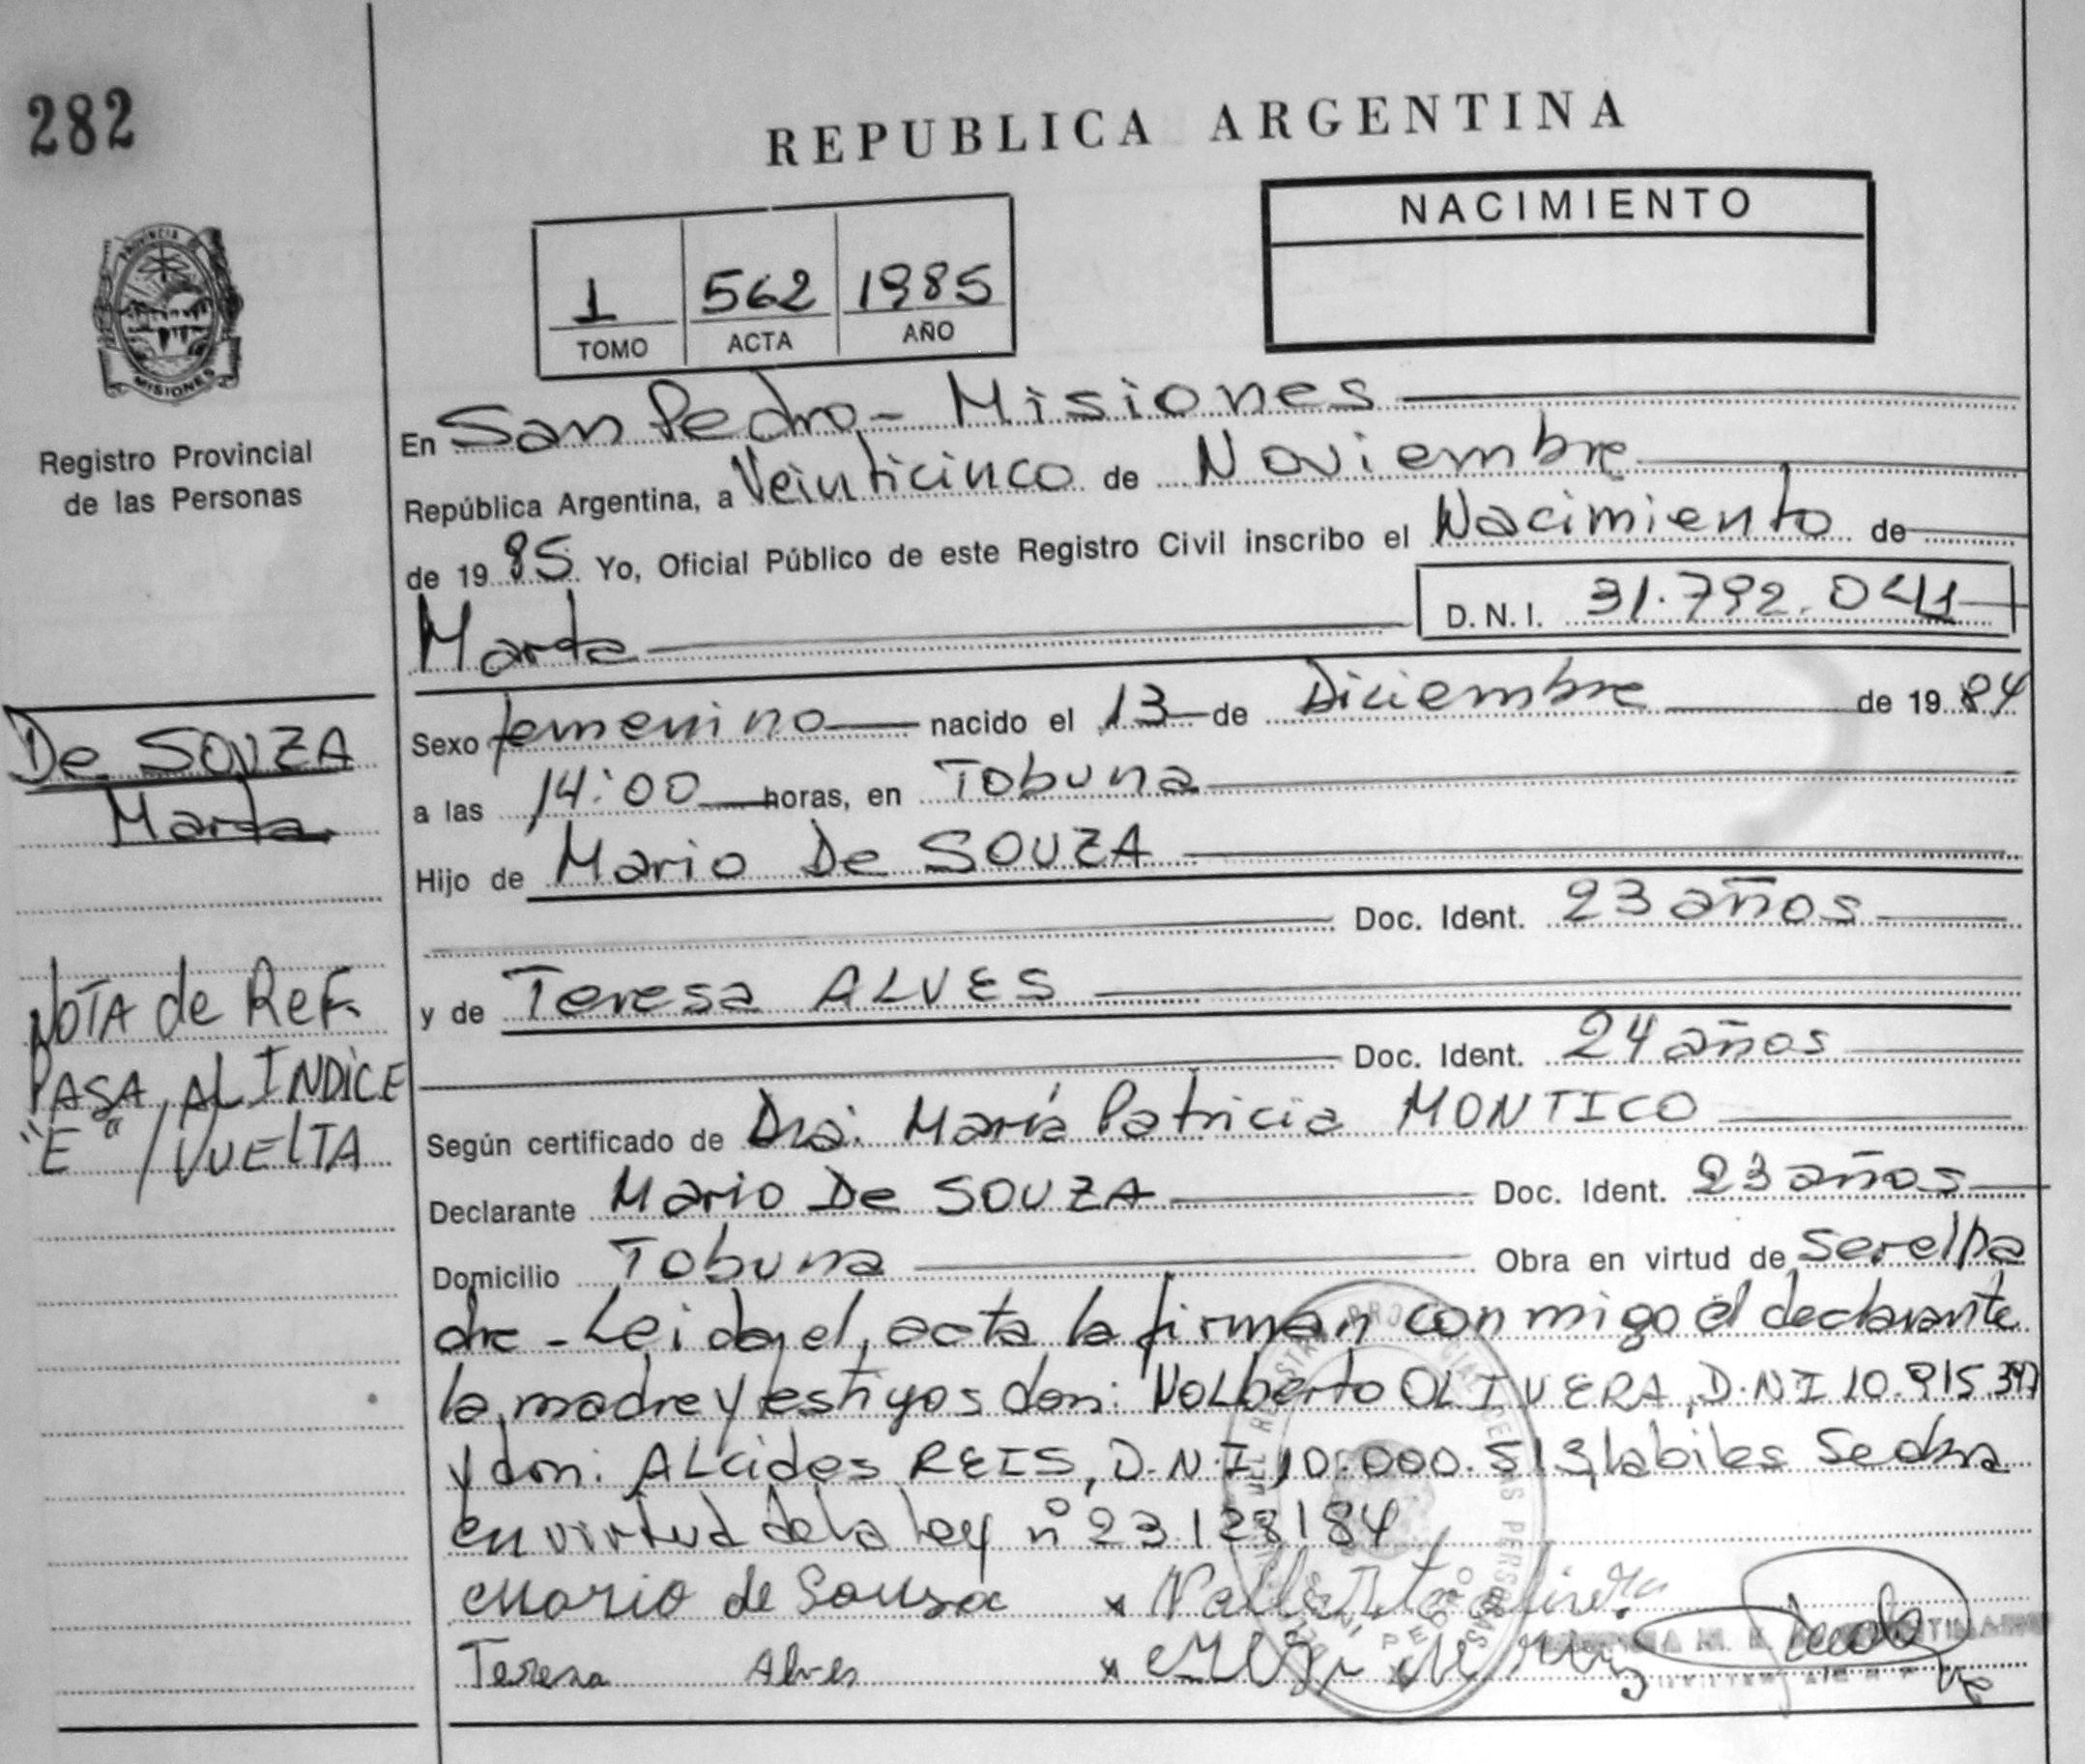 282
REPUBLICA ARGENTINA
NACIMIENTO
1 562 1985
TOMO ACTA AÑO
PROVINCIA DE
MISIONES
Registro Provincial
de las Personas
En San Pedro - Misiones
República Argentina, a Veinticinco de Noviembre
de 19 85 Yo, Oficial Público de este Registro Civil inscribo el Nacimiento de
Marta
D. N. I. 31.792.041
De SOUZA
Marta
Sexo femenino nacido el 13 de Diciembre de 19 84
a las 14:00 horas, en Tobuna
Hijo de Mario De SOUZA
Doc. Ident. 23 años
y de Teresa ALVES
Doc. Ident. 24 años
NOTA de REF.
PASA AL INDICE
"E" / VUELTA
Según certificado de Dra: María Patricia MONTICO
Declarante Mario De SOUZA Doc. Ident. 23 años
Domicilio Tobuna Obra en virtud de ser el pa
dre - Leida el acta la firman conmigo el declarante
la madre y testigos don: Nolberto OLIVERA, D.N.I 10.915.
y don: ALcides REIS, D.N.I 10.000.513
en virtud de la ley nº 23.128/84
Mario de Sousa
Teresa Alves